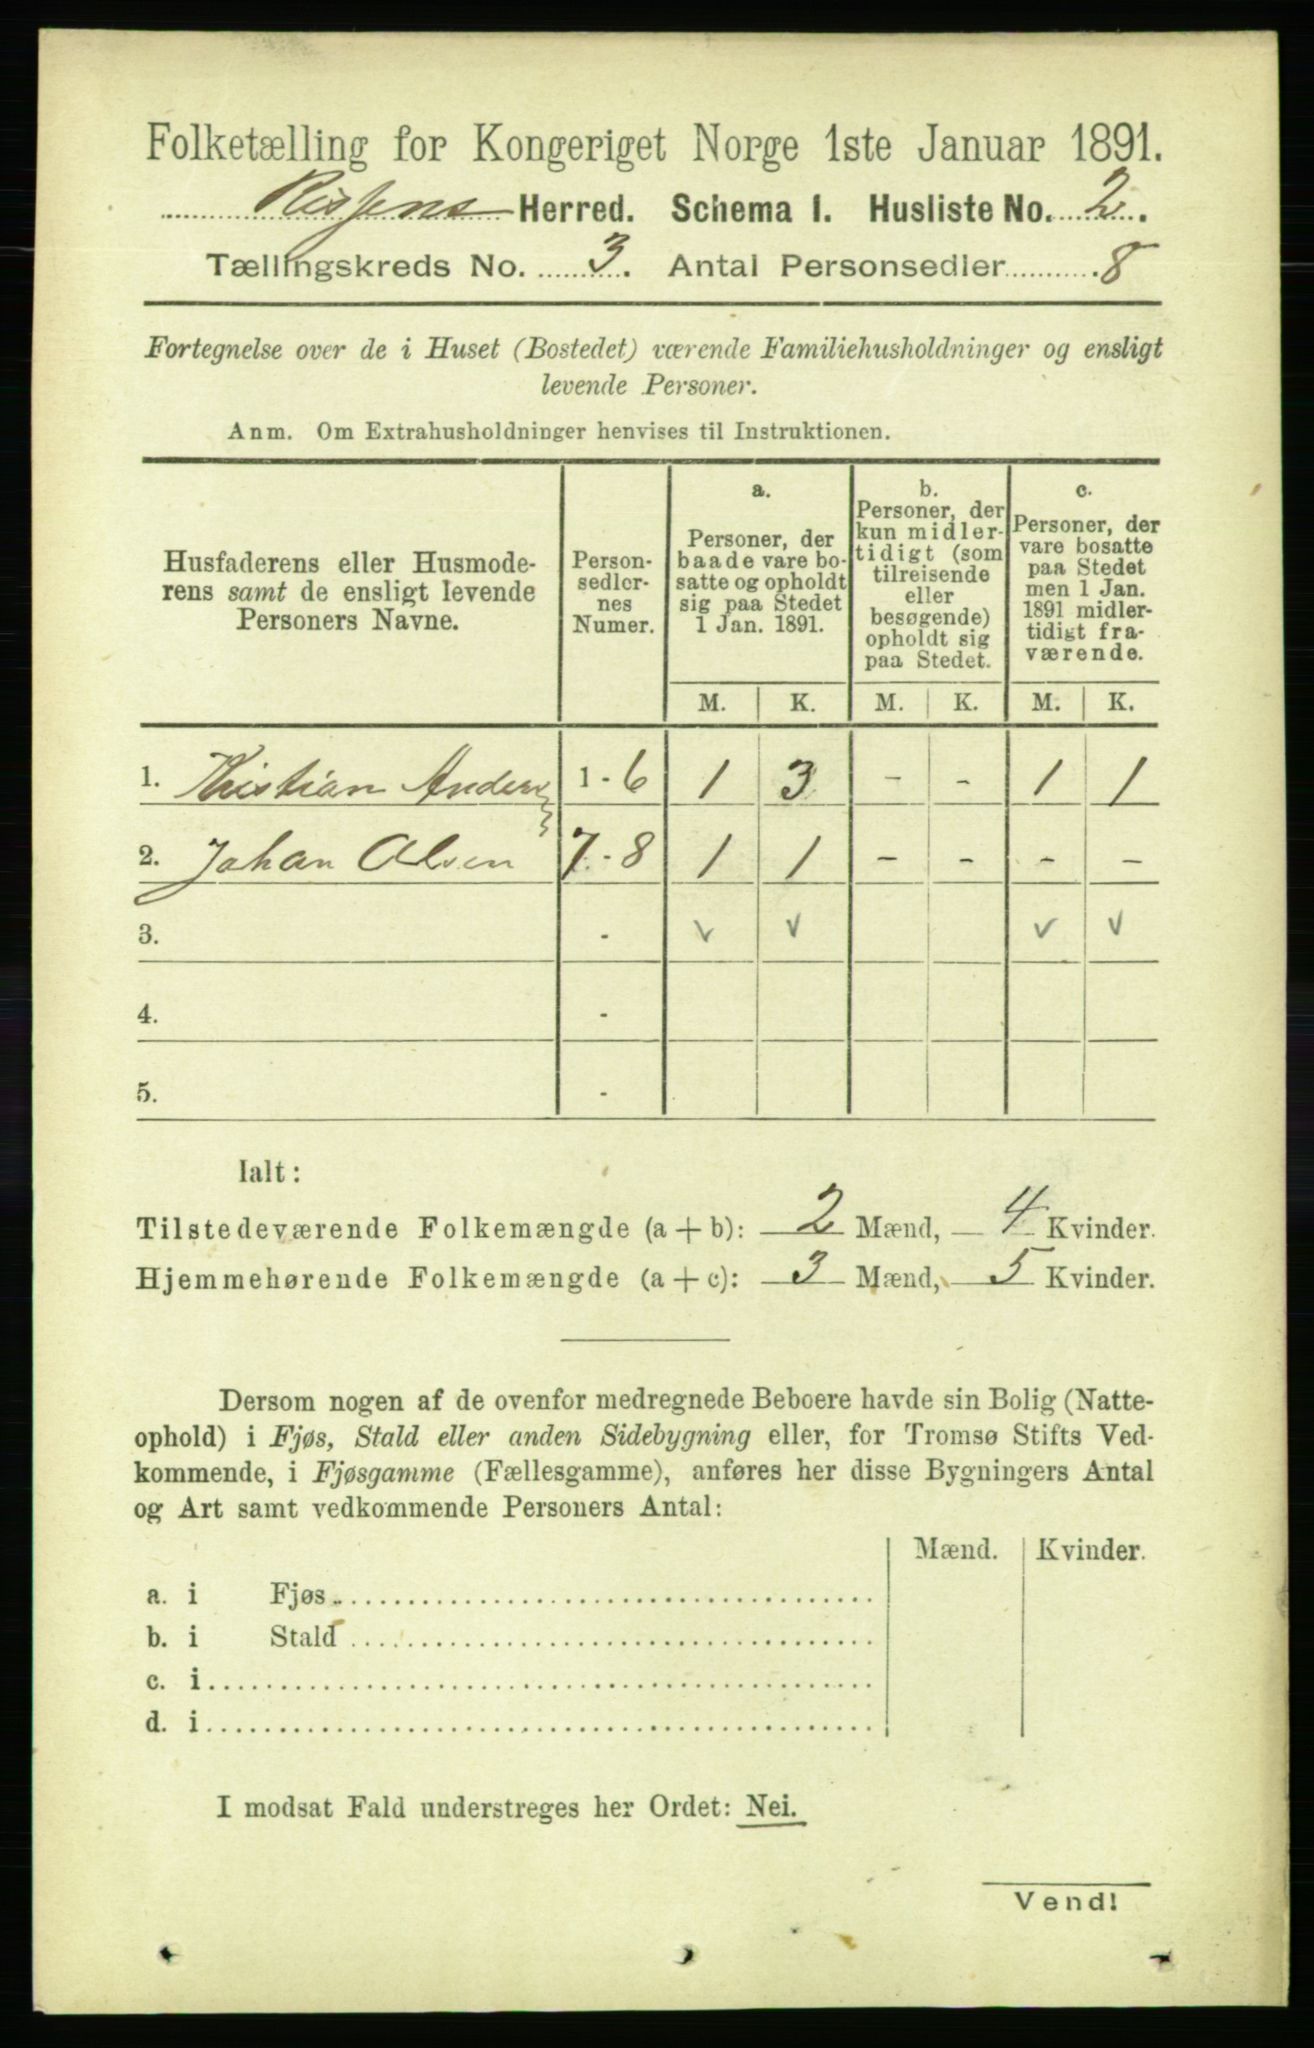 Folketælling for Kongeriget Norge 1ste Januar 1891.
Rissens Herred. Schema I. Husliste No. 2.
Tællingskreds No. 3. Antal Personsedler 8
Fortegnelse over de i Huset (Bostedet) værende Familiehusholdninger og ensligt
levende Personer.
Anm. Om Extrahusholdninger henvises til Instruktionen.
Husfaderens eller Husmode-
rens samt de ensligt levende
Personers Navne.
Person-
sedler-
nes
Numer.
a.
Personer, der
baade vare bo-
satte og opholdt
sig paa Stedet
1 Jan. 1891.
b.
Personer, der
kun midler-
tidigt (som
tilreisende
eller
besøgende)
opholdt sig
paa Stedet.
c.
Personer, der
vare bosatte
paa Stedet
men 1 Jan.
1891 midler-
tidigt fra-
værende.
M. K. M. K. M. K.
1. Kristian Anders 1 - 6 1 3 - - 1 1
2. Johan Olsen 7 - 8 1 1 - - - -
3. - v v v v
4. -
5. -
Ialt:
Tilstedeværende Folkemængde (a + b): 2 Mænd, 4 Kvinder.
Hjemmehørende Folkemængde (a + c): 3 Mænd, 5 Kvinder.
Dersom nogen af de ovenfor medregnede Beboere havde sin Bolig (Natte-
ophold) i Fjøs, Stald eller anden Sidebygning eller, for Tromsø Stifts Ved-
kommende, i Fjøsgamme (Fællesgamme), anføres her disse Bygningers Antal
og Art samt vedkommende Personers Antal:
Mænd. Kvinder.
a. i Fjøs
b. i Stald
c. i
d. i
I modsat Fald understreges her Ordet: Nei.
Vend!